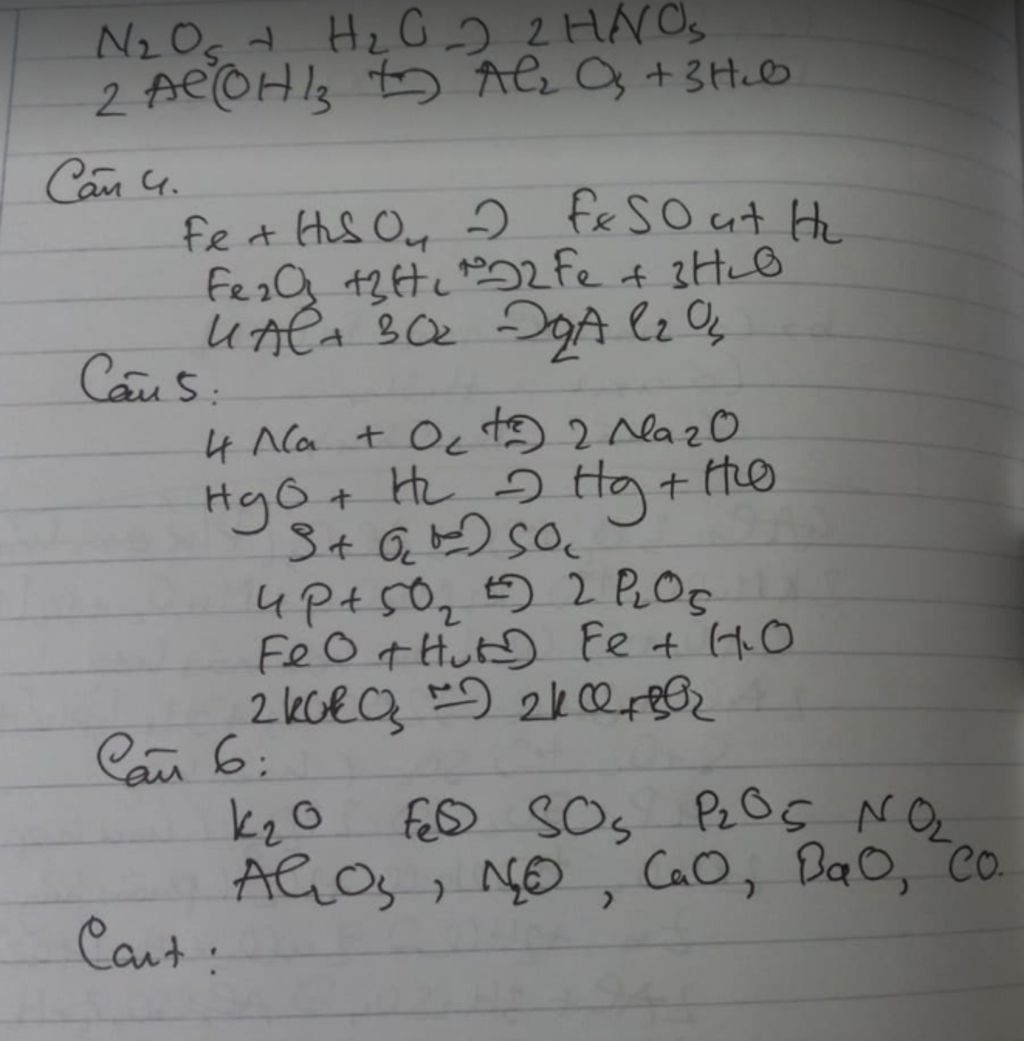 N₂O₅ + H₂O → 2HNO₃
2 Al(OH)₃ t°→ Al₂O₃ + 3H₂O
Câu 4.
Fe + H₂SO₄ → FeSO₄ + H₂
Fe₂O₃ + 3H₂ t°→ 2Fe + 3H₂O
4Al + 3O₂ → 2Al₂O₃
Câu 5:
4Na + O₂ t°→ 2Na₂O
HgO + H₂ → Hg + H₂O
S + O₂ t°→ SO₂
4P + 5O₂ t°→ 2P₂O₅
FeO + H₂ t°→ Fe + H₂O
2KClO₃ t°→ 2KCl + 3O₂
Câu 6:
K₂O FeO SO₃ P₂O₅ NO₂
Al₂O₃, N₂O, CaO, BaO, CO.
Câu 7: